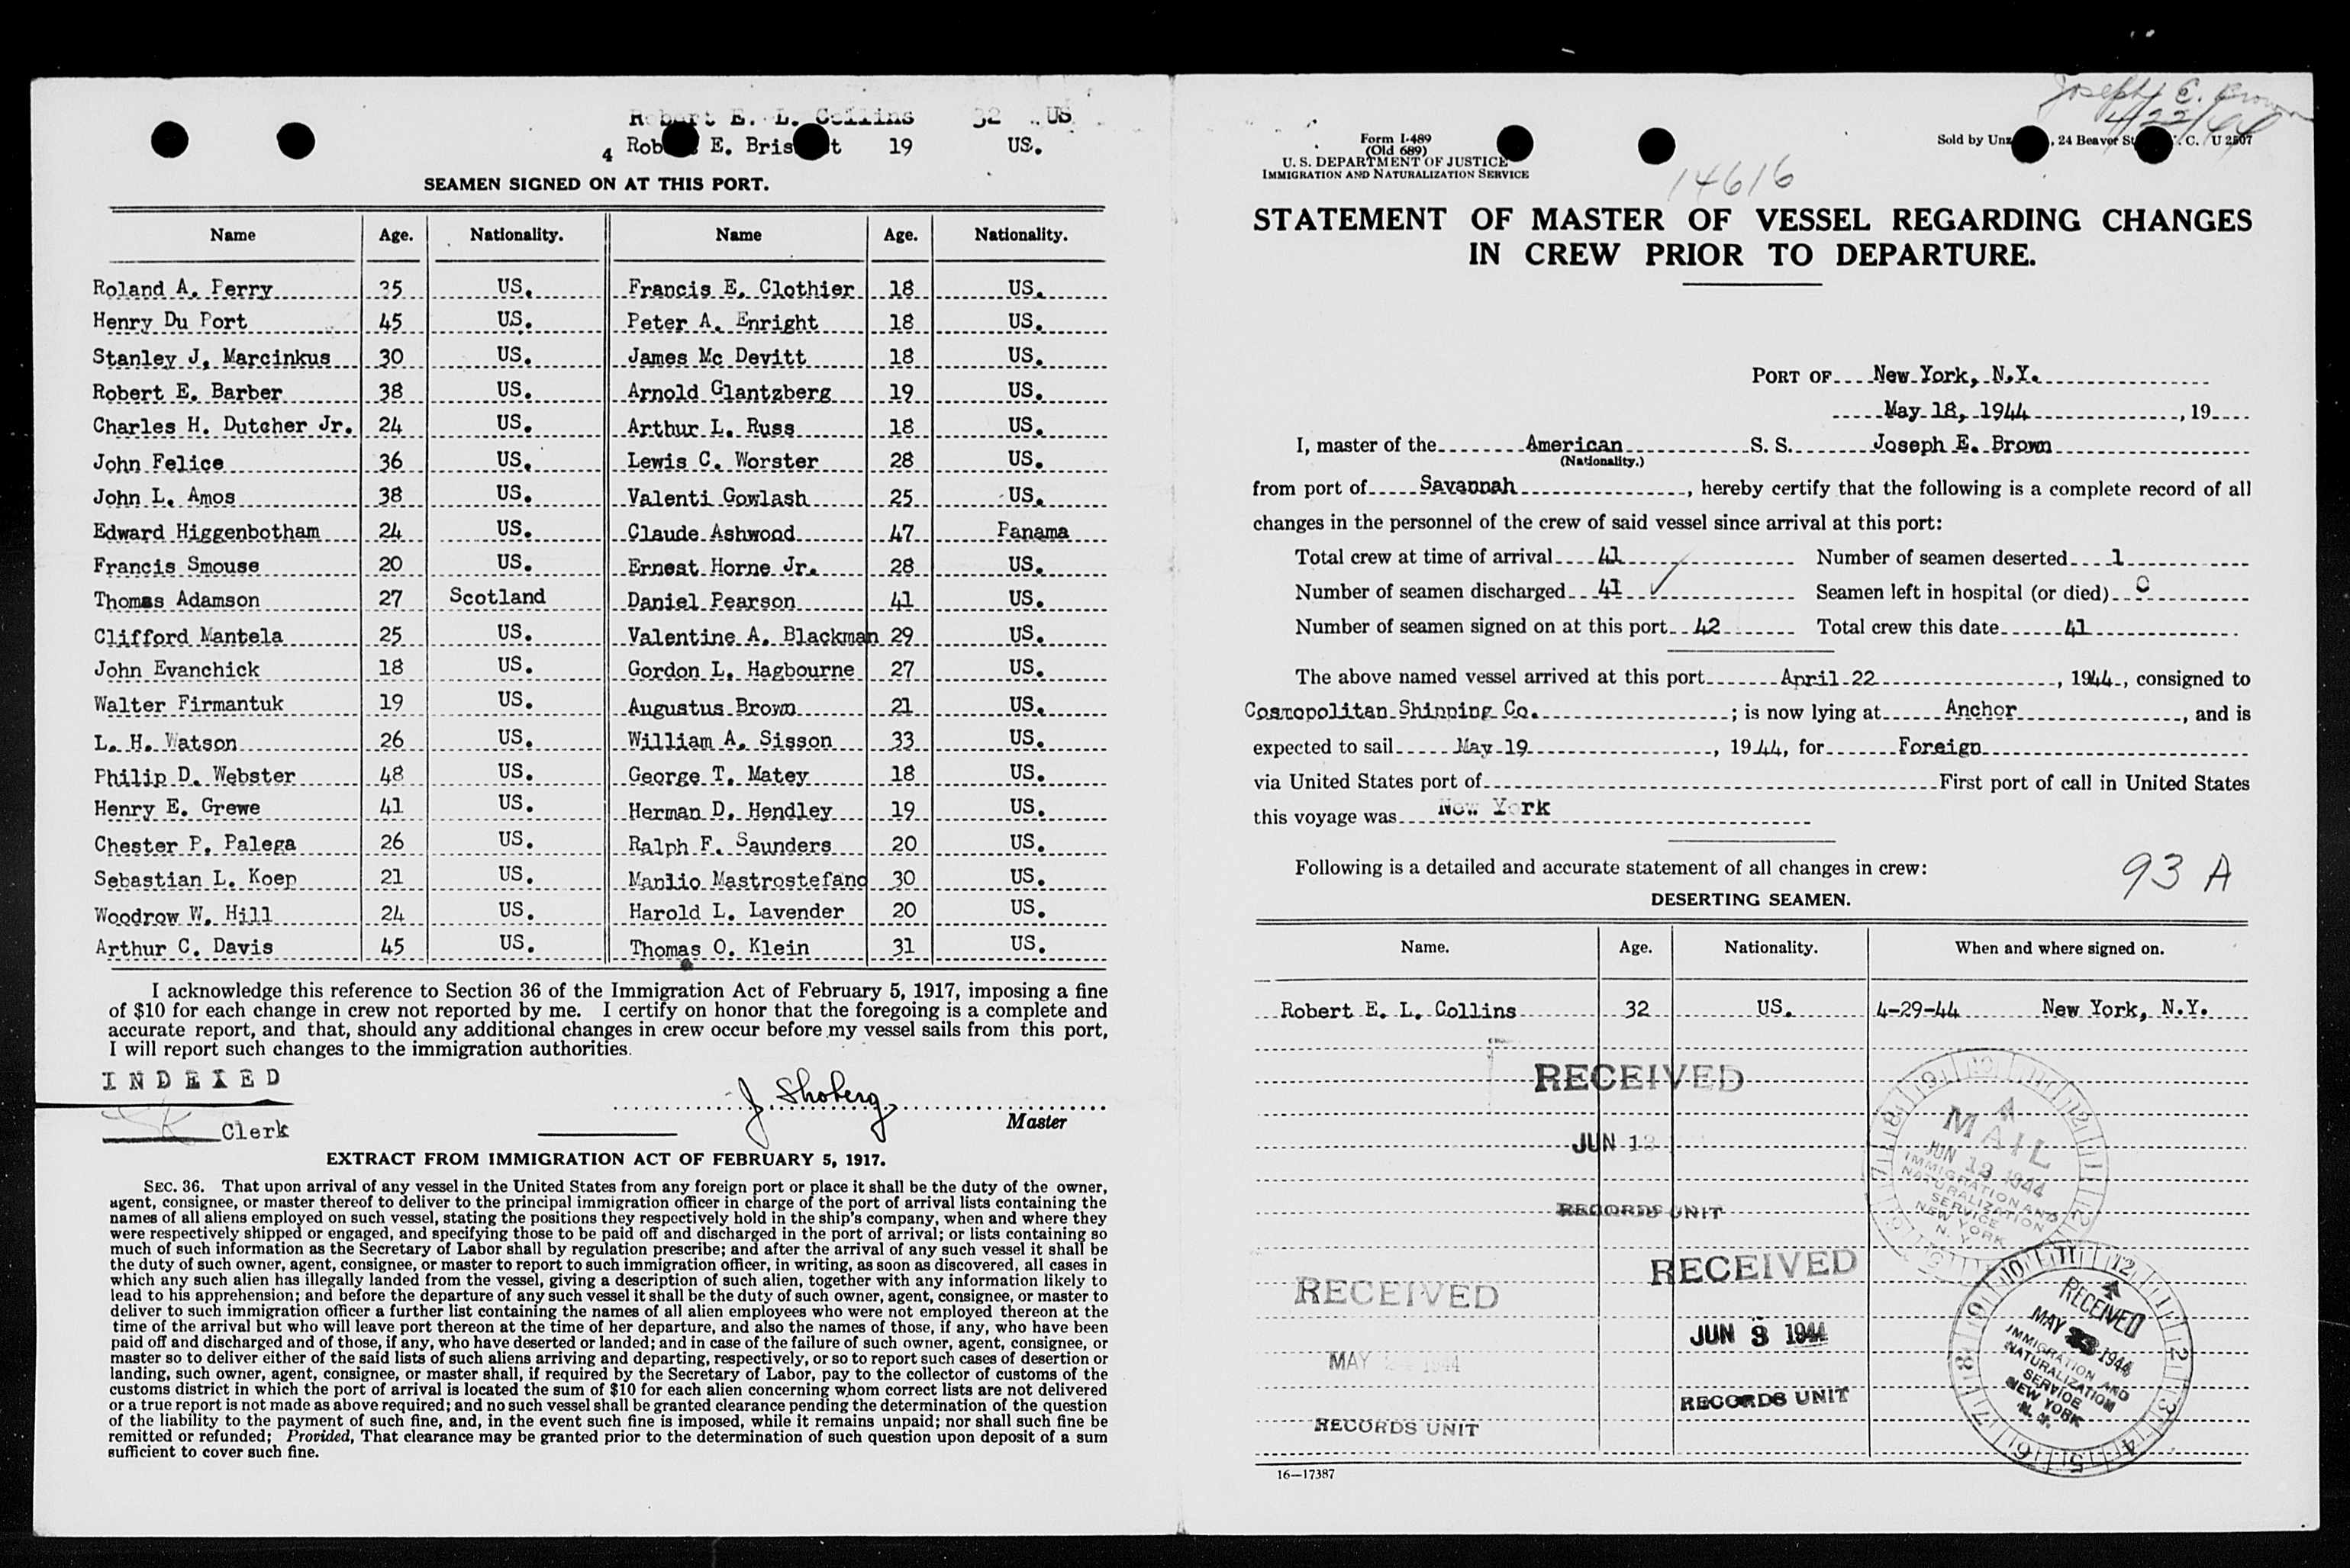 Robert E. L. Collins 32 US
4 Rob E. Bris t 19 US.
SEAMEN SIGNED ON AT THIS PORT.
Name Age. Nationality. Name Age. Nationality.
Roland A. Perry 35 US. Francis E. Clothier 18 US.
Henry Du Port 45 US. Peter A. Enright 18 US.
Stanley J, Marcinkus 30 US. James Mc Devitt 18 US.
Robert E. Barber 38 US. Arnold Glantzberg 19 US.
Charles H. Dutcher Jr. 24 US. Arthur L. Russ 18 US.
John Felice 36 US. Lewis C. Worster 28 US.
John L. Amos 38 US. Valenti Gowlash 25 US.
Edward Higgenbotham 24 US. Claude Ashwood 47 Panama
Francis Smouse 20 US. Ernest Horne Jr. 28 US.
Thomas Adamson 27 Scotland Daniel Pearson 41 US.
Clifford Mantela 25 US. Valentine A. Blackman 29 US.
John Evanchick 18 US. Gordon L. Hagbourne 27 US.
Walter Firmantuk 19 US. Augustus Brown 21 US.
L. H. Watson 26 US. William A. Sisson 33 US.
Philip D. Webster 48 US. George T. Matey 18 US.
Henry E. Grewe 41 US. Herman D. Hendley 19 US.
Chester P. Palega 26 US. Ralph F. Saunders 20 US.
Sebastian L. Koep 21 US. Manlio Mastrostefano 30 US.
Woodrow W. Hill 24 US. Harold L. Lavender 20 US.
Arthur C. Davis 45 US. Thomas O. Klein 31 US.
I acknowledge this reference to Section 36 of the Immigration Act of February 5, 1917, imposing a fine
of $10 for each change in crew not reported by me. I certify on honor that the foregoing is a complete and
accurate report, and that, should any additional changes in crew occur before my vessel sails from this port,
I will report such changes to the immigration authorities.
INDEXED
J. Shoberg
Master
Clerk
EXTRACT FROM IMMIGRATION ACT OF FEBRUARY 5, 1917.
SEC. 36. That upon arrival of any vessel in the United States from any foreign port or place it shall be the duty of the owner,
agent, consignee, or master thereof to deliver to the principal immigration officer in charge of the port of arrival lists containing the
names of all aliens employed on such vessel, stating the positions they respectively hold in the ship's company, when and where they
were respectively shipped or engaged, and specifying those to be paid off and discharged in the port of arrival; or lists containing so
much of such information as the Secretary of Labor shall by regulation prescribe; and after the arrival of any such vessel it shall be
the duty of such owner, agent, consignee, or master to report to such immigration officer, in writing, as soon as discovered, all cases in
which any such alien has illegally landed from the vessel, giving a description of such alien, together with any information likely to
lead to his apprehension; and before the departure of any such vessel it shall be the duty of such owner, agent, consignee, or master to
deliver to such immigration officer a further list containing the names of all alien employees who were not employed thereon at the
time of the arrival but who will leave port thereon at the time of her departure, and also the names of those, if any, who have been
paid off and discharged and of those, if any, who have deserted or landed; and in case of the failure of such owner, agent, consignee, or
master so to deliver either of the said lists of such aliens arriving and departing, respectively, or so to report such cases of desertion or
landing, such owner, agent, consignee, or master shall, if required by the Secretary of Labor, pay to the collector of customs of the
customs district in which the port of arrival is located the sum of $10 for each alien concerning whom correct lists are not delivered
or a true report is not made as above required; and no such vessel shall be granted clearance pending the determination of the question
of the liability to the payment of such fine, and, in the event such fine is imposed, while it remains unpaid; nor shall such fine be
remitted or refunded; Provided, That clearance may be granted prior to the determination of such question upon deposit of a sum
sufficient to cover such fine.
Joseph E. Brown
4/22/44
Form I-489
(Old 689)
U. S. DEPARTMENT OF JUSTICE
IMMIGRATION AND NATURALIZATION SERVICE
Sold by Unz , 24 Beaver St . C. U 2507
14616
STATEMENT OF MASTER OF VESSEL REGARDING CHANGES
IN CREW PRIOR TO DEPARTURE.
PORT OF New York, N.Y.
May 18, 1944, 19
I, master of the American S. S. Joseph E. Brown
(Nationality.)
from port of Savannah, hereby certify that the following is a complete record of all
changes in the personnel of the crew of said vessel since arrival at this port:
Total crew at time of arrival 41 Number of seamen deserted 1
Number of seamen discharged 41 ✓ Seamen left in hospital (or died) 0
Number of seamen signed on at this port 42 Total crew this date 41
The above named vessel arrived at this port April 22, 1944, consigned to
Cosmopolitan Shipping Co.; is now lying at Anchor, and is
expected to sail May 19, 1944, for Foreign
via United States port of First port of call in United States
this voyage was New York
Following is a detailed and accurate statement of all changes in crew:
93 A
DESERTING SEAMEN.
Name. Age. Nationality. When and where signed on.
Robert E. L. Collins 32 US. 4-29-44 New York, N.Y.
RECEIVED
JUN 13
RECORDS UNIT
MAIL
JUN 12 1944
IMMIGRATION AND
NATURALIZATION
SERVICE
NEW YORK
N. Y.
RECEIVED
JUN 3 1944
RECORDS UNIT
RECEIVED
MAY 1944
RECORDS UNIT
RECEIVED
MAY 1944
IMMIGRATION AND
NATURALIZATION
SERVICE
NEW YORK
N. Y.
16—17387